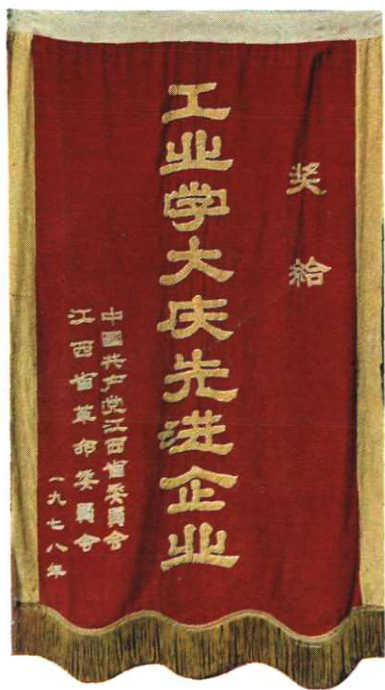 奖给
工业学大庆先进企业
中國共产党江西省委員会
江西省革命委員会
一九七八年